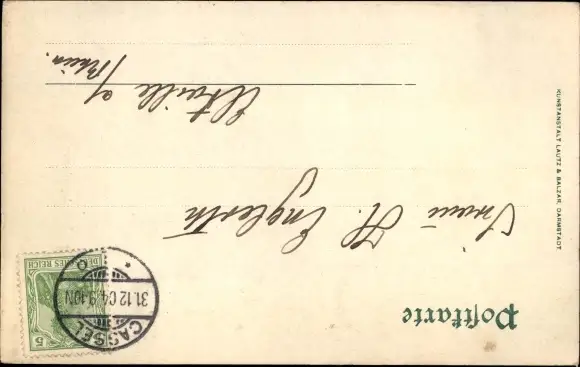 Postkarte
5
DEUTSCHES REICH
CASSEL
31.12.04.9-10N
* O
H. Englerth
Eltville a/
Rhein.
KUNSTANSTALT LAUTZ & BALZAR, DARMSTADT